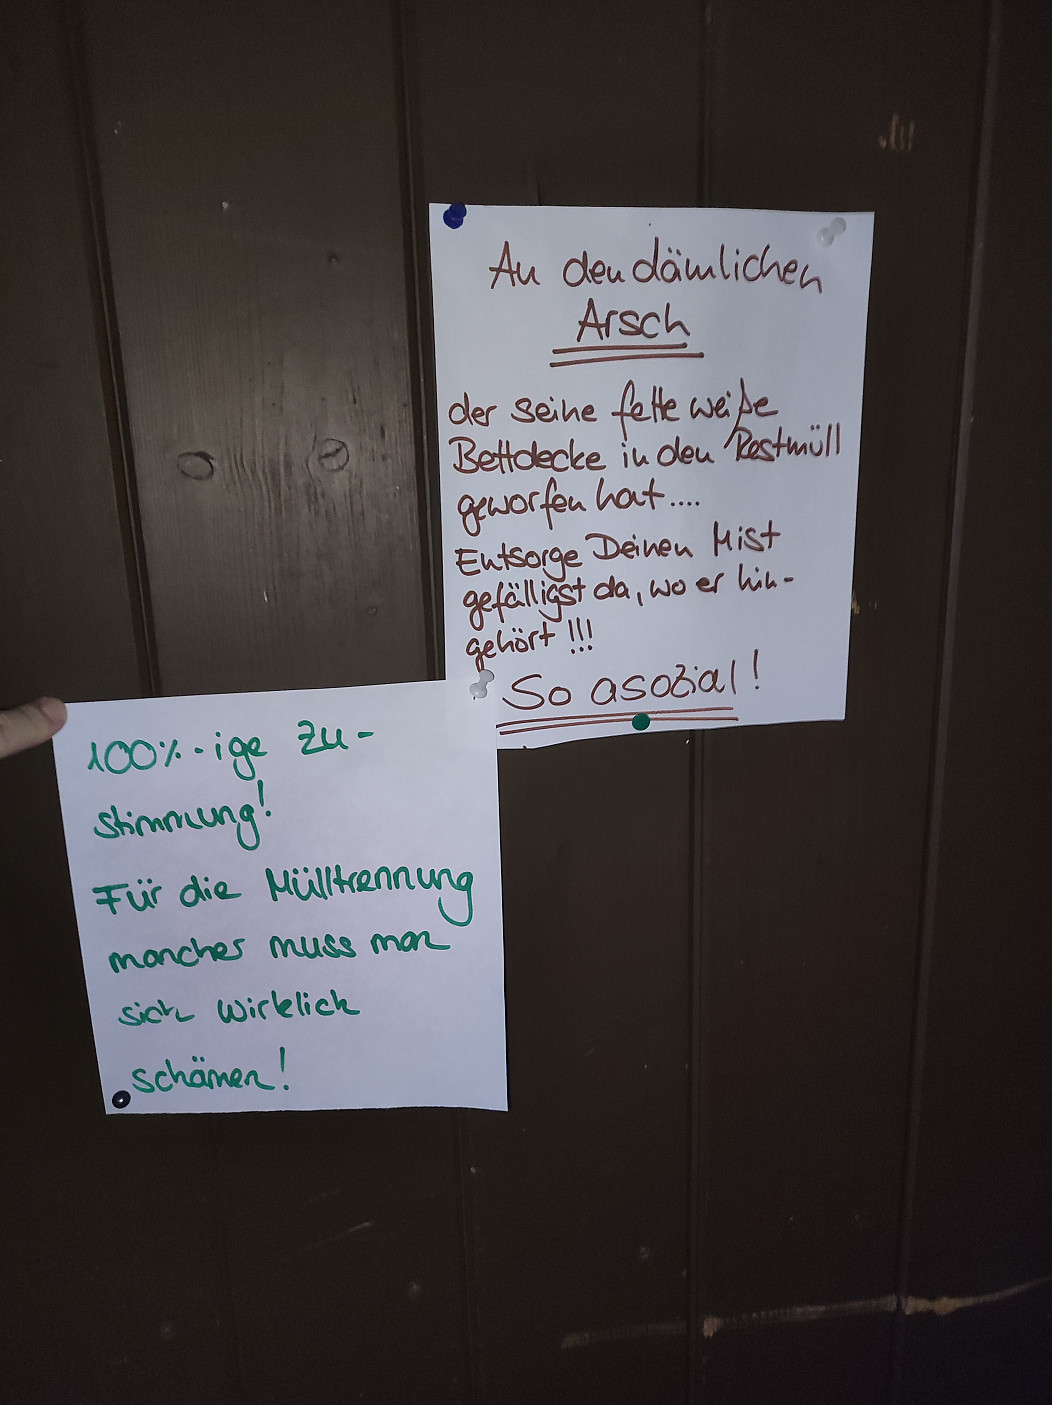 An den dämlichen
Arsch
der seine fette weiße
Bettdecke in den Restmüll
geworfen hat....
Entsorge Deinen Mist
gefälligst da, wo er hin-
gehört !!!
So asozial!
100%-ige Zu-
stimmung!
Für die Mülltrennung
mancher muss man
sich wirklich
schämen!